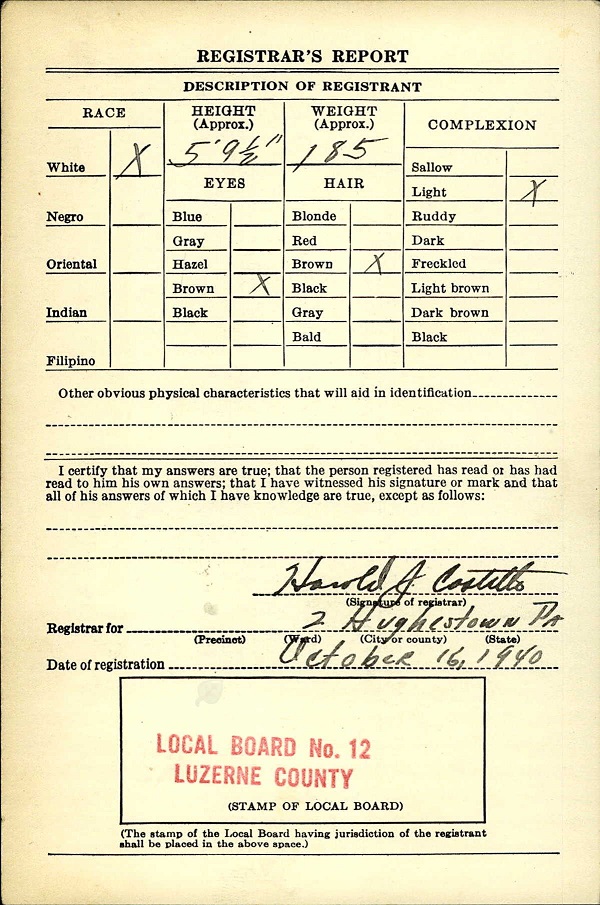 REGISTRAR'S REPORT
DESCRIPTION OF REGISTRANT
RACE
HEIGHT (Approx.)
WEIGHT (Approx.)
COMPLEXION
5' 9 1/2"
185
White X
Sallow
EYES
HAIR
Light X
Negro
Blue
Blonde
Ruddy
Gray
Red
Dark
Oriental
Hazel
Brown X
Freckled
Brown X
Black
Light brown
Indian
Black
Gray
Dark brown
Bald
Black
Filipino
Other obvious physical characteristics that will aid in identification
I certify that my answers are true; that the person registered has read or has had
read to him his own answers; that I have witnessed his signature or mark and that
all of his answers of which I have knowledge are true, except as follows:
Harold J. Costello
(Signature of registrar)
Registrar for 2 Hughestown Pa
(Precinct) (Ward) (City or county) (State)
Date of registration October 16, 1940
LOCAL BOARD No. 12
LUZERNE COUNTY
(STAMP OF LOCAL BOARD)
(The stamp of the Local Board having jurisdiction of the registrant
shall be placed in the above space.)